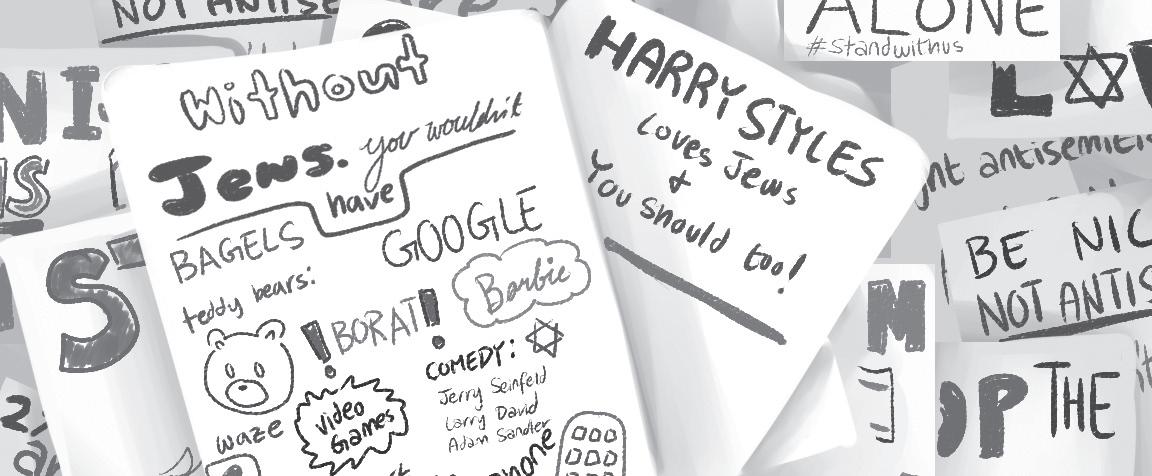 NOT ANTISE
ALONE
#Standwithus
Without
Jews. you wouldn't
have
BAGELS
GOOGLE
teddy bears:
Barbie
! BORAT!
video
Games
waze
COMEDY:
Jerry Seinfeld
Larry David
Adam Sandler
HARRY STYLES
Loves Jews
&
You Should too!
antisemiti
BE NIC
NOT ANTIS
OP THE